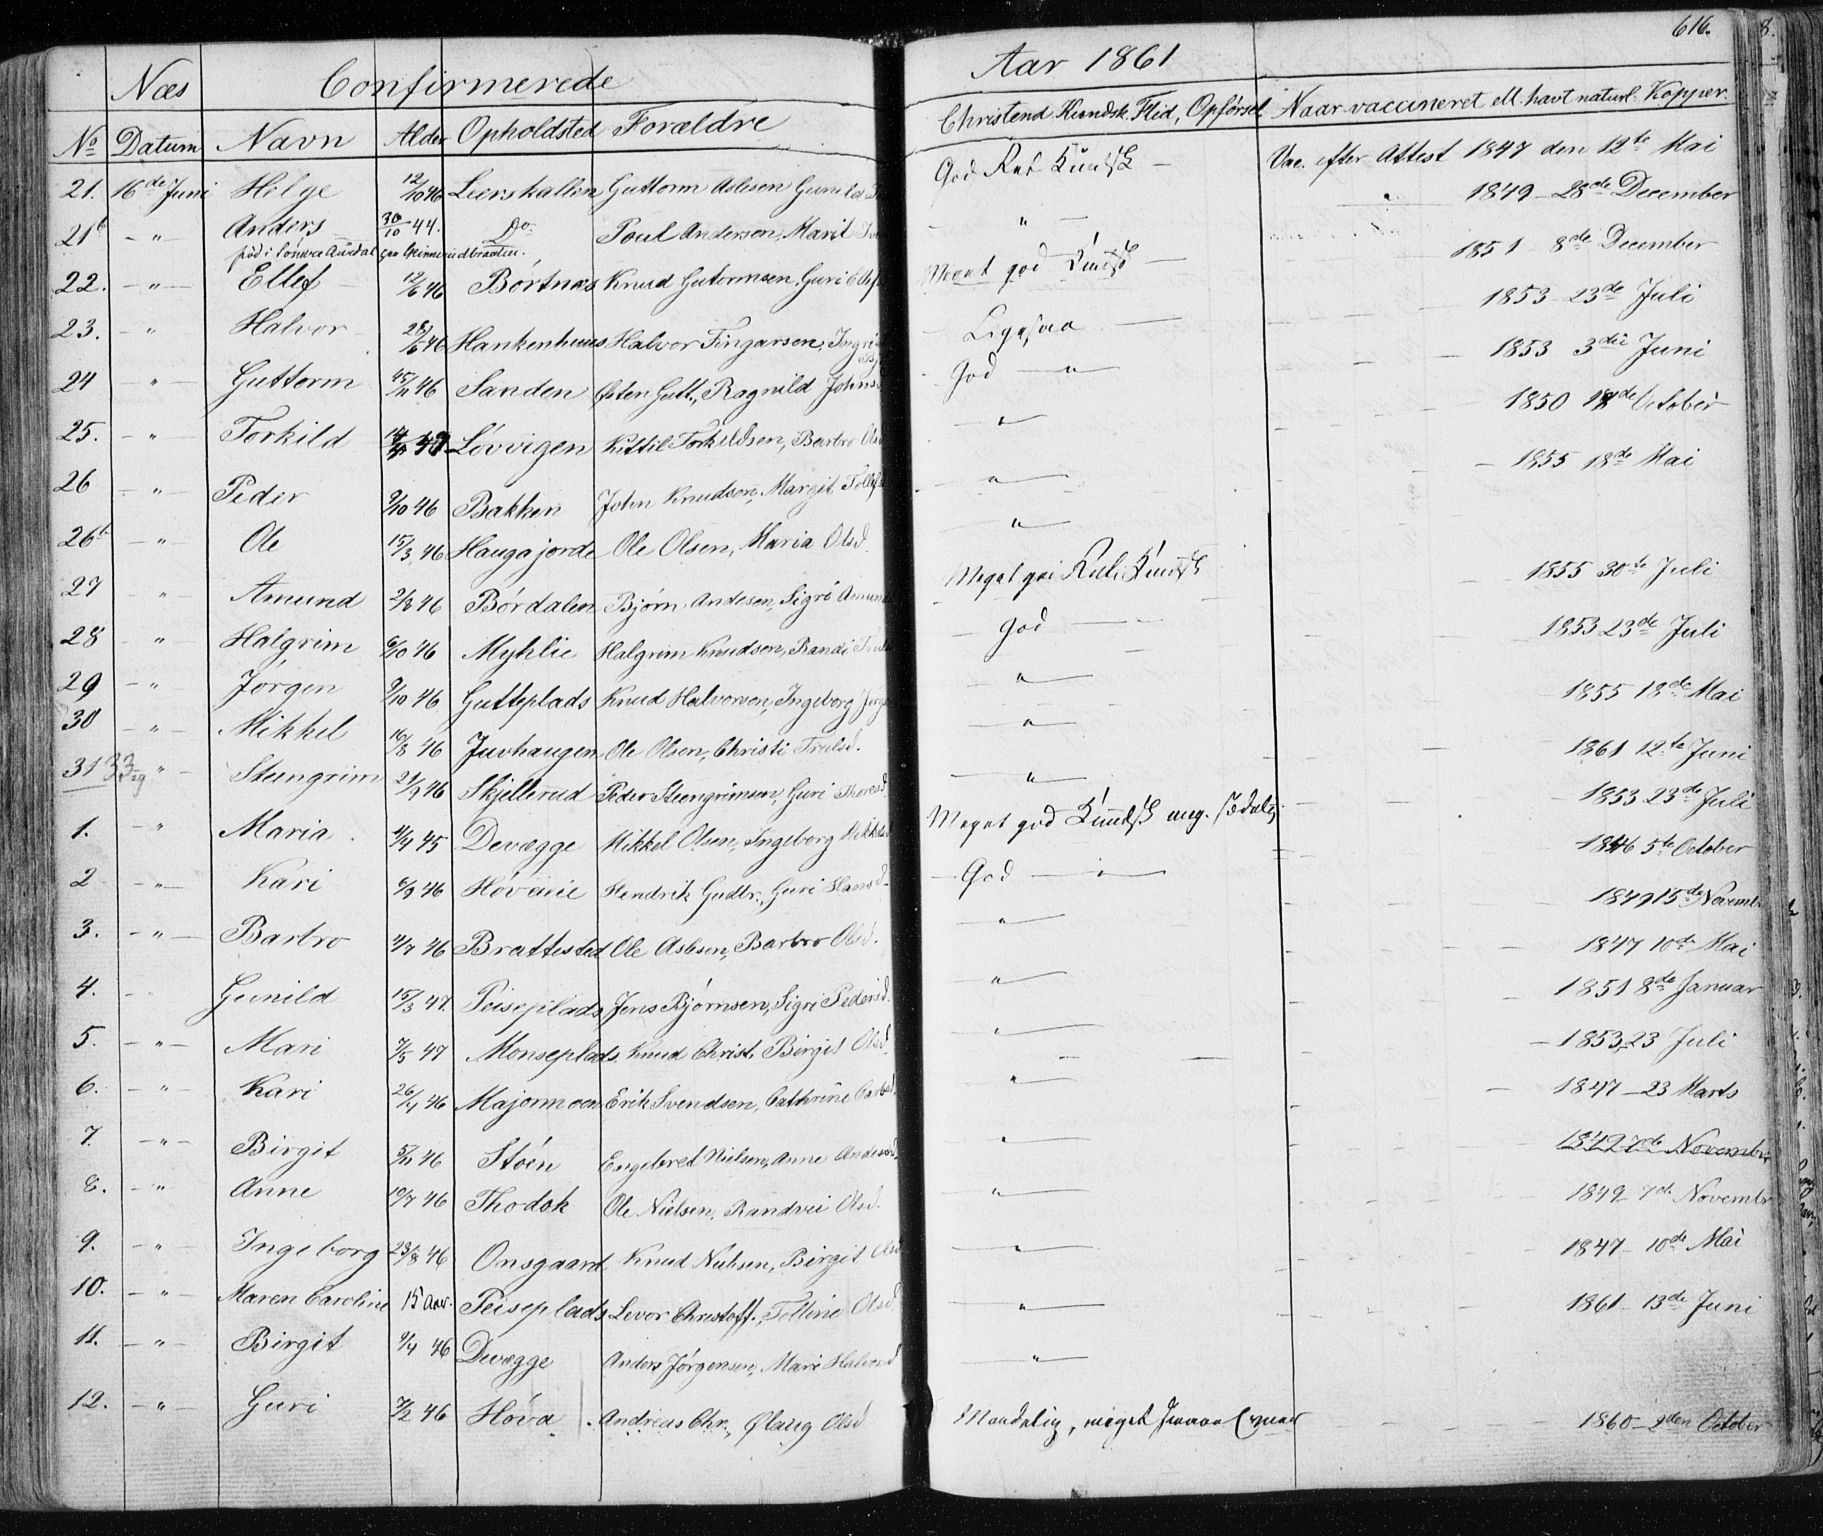 616.
Næs Confirmerede Aar 1861
No Datum Navn Alder Opholdsted Forældre Christend Kundsk. Flid, Opførsel Naar vaccineret ell. havt naturl. Kopper.
21. 16de Juni Helge 12/10 46 Leerskallen Guttorm Aslesen Gunild God Rel. Kundsk Vac. efter Attest 1847 den 12te Mai
21b - " - Anders 30/10 44. Do. Poul Andersen, Marit " 1849 - 28de December
22. - " - Ellef 12/6 46 Børtnæs Knud Gutormsen, Guri Meget god Kundsk 1851 8de December
23. - " Halvor 28/6 46 Hankenhuus Halvor Fingarsen, Ligesaa 1853 23de Juli
24 " Guttorm 15/11 46 Sanden Østen Gutt., Ragnild Johns God " 1853 3die Juni
25. - " Torkild Løvvigen Kittil Torkildsen, Barbro Olsd " 1850 October
26 " Peder 9/10 46 Bakken John Knudson, Margit " 1855 18de Mai
26b " Ole 15/3 46 Haugajorde Ole Olsen, Maria Olsd. "
27 " Amund 2/3 46 Børdalen Bjørn Andesen, Sigri Amund Meget god Kundsk 1855 30te Juli
28 " Halgrim 6/10 46 Myhlie Halgrim Knudsen, Randi God 1853 23de Juli
29 - " - Jørgen 9/10 46. Gutteplads Knud Halvorsen, Ingeborg " 1855 18de Mai
30 - " Mikkel 16/8 46 Juvhaugen Ole Olsen, Christi Trulsd. " 1861 12te Juni
31 33 " Steengrim 21/9 46 Skjellerud Peder Steengrimsen, Guri Thoresd. " 1853 23de Juli
1. - " Maria 45 Devægge Mikkel Olsen, Ingeborg Mikkelsd Meget god Kundsk 1846 5te October
2 - " - Kari 6/9 46 Hendrik Gudbr., Guri Hansd. God " 1849 15de Novemb
3. - " - Barbro 4/7 46 Brattested Ole Aslesen, Barbro Olsd. " 1847 10de Mai
4. " Gunild 15/3 47. Peiseplads Jens Bjørnsen, Sigri Pedersd. " 1851 8de Januar
5. - " - Mari 7/5 47 Monseplads Knud Christ. Birgit Olsd. " 1853 23 Juli
6. - " - Kari 26/4 46 Majormoen Erik Svendsen, Cathrine " 1847 - 23 Marts
7. - " - Birgit 5/11 46 Støen Engebret Nielsen, Anne Andersd. " 1849 7de Novembr
8. - " Anne 10/7 46 Thodok Ole Nielsen, Randvei Olsd. " 1849 7de Novembr
9. - " Ingeborg 23/8 46 Onsgaard Knud Nielsen, Birgit Olsd " 1847 - 10de Mai
10. - " - Maren Caroline 15 Aar. Peiseplads Levor Christoff., Olsd. " 1861 - 13de Juni
11. - " - Birgit 9/4 46 Devægge Anders Jørgensen, Mari Halvorsd " 
12. - " - Guri 7/2 46 Hova Andreas Chr., Ølaug Olsd Maadelig, meget 1860 - 2den October